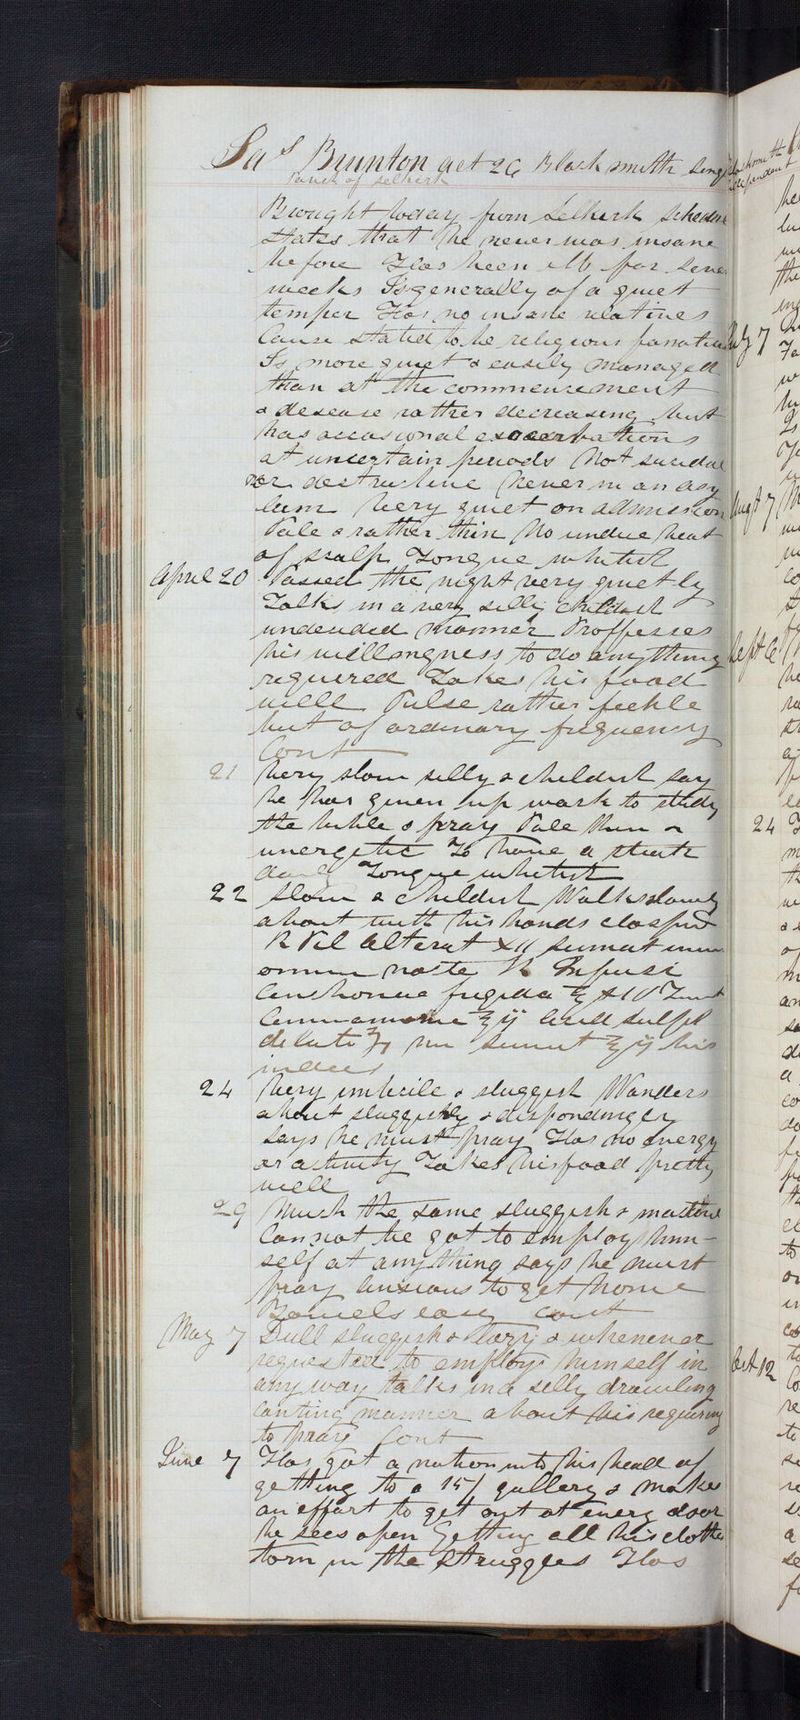 Jas Brunton aet 26 Blacksmith Sing
Parish of Selkirk
Brought today from Selkirk Schedule
states that he never was insane
before Has been ill for some
weeks Is generally of a quiet
temper Has no insane relatives
Cause stated to be religious fanatic
Is more quiet & easily managed
than at the commencement
& desease rather decreasing but
has occasional exacerbations
at uncertain periods Not suicidal
nor destructive Never in an asy
lum Very quiet on admission
Pale & rather thin No undue heat
of scalp Tongue whitish
April 20 Passed the night very quietly
Talks in a very silly childish
undecided manner Proffesses
his willingness to do anything
required Takes his food
well Pulse rather feeble
but of ordinary frequency
Cont
21 Very slow silly & childish say
he has given up work to study
the bible & pray Pale thin &
unergetic To have a
daily Tongue whitish
22 Slow & childish Walks slowly
about with his hands clasped
R Pil Alterat XII sumat unam
omni nocte R Infusi
Cinchonae frigida
Cinnamome ℥ij Acid Sulph
dilute sumat ℥ij bis
indies
24 Very imbecile & sluggish Wanders
about sluggishly & dispondingly
Says he must pray Has no energy
or activity Takes his food pretty
well
29 Much the same sluggish & inactive
Cannot be got to employ him-
self at anything says he must
pray Anxious to get home
Bowels easy cont
May 7 Dull sluggish & lazy & whenever
requested to employ himself in
any way talks in a silly drawling
canting manner about his requiring
to pray Cont
June 7 Has got a notion into his head of
getting to a 15/ gallery & makes
an effort to get out at every door
he sees open Getting all his clothes
torn in the struggles Has
July 7
Augt 7
Sept 6
24
Oct 12